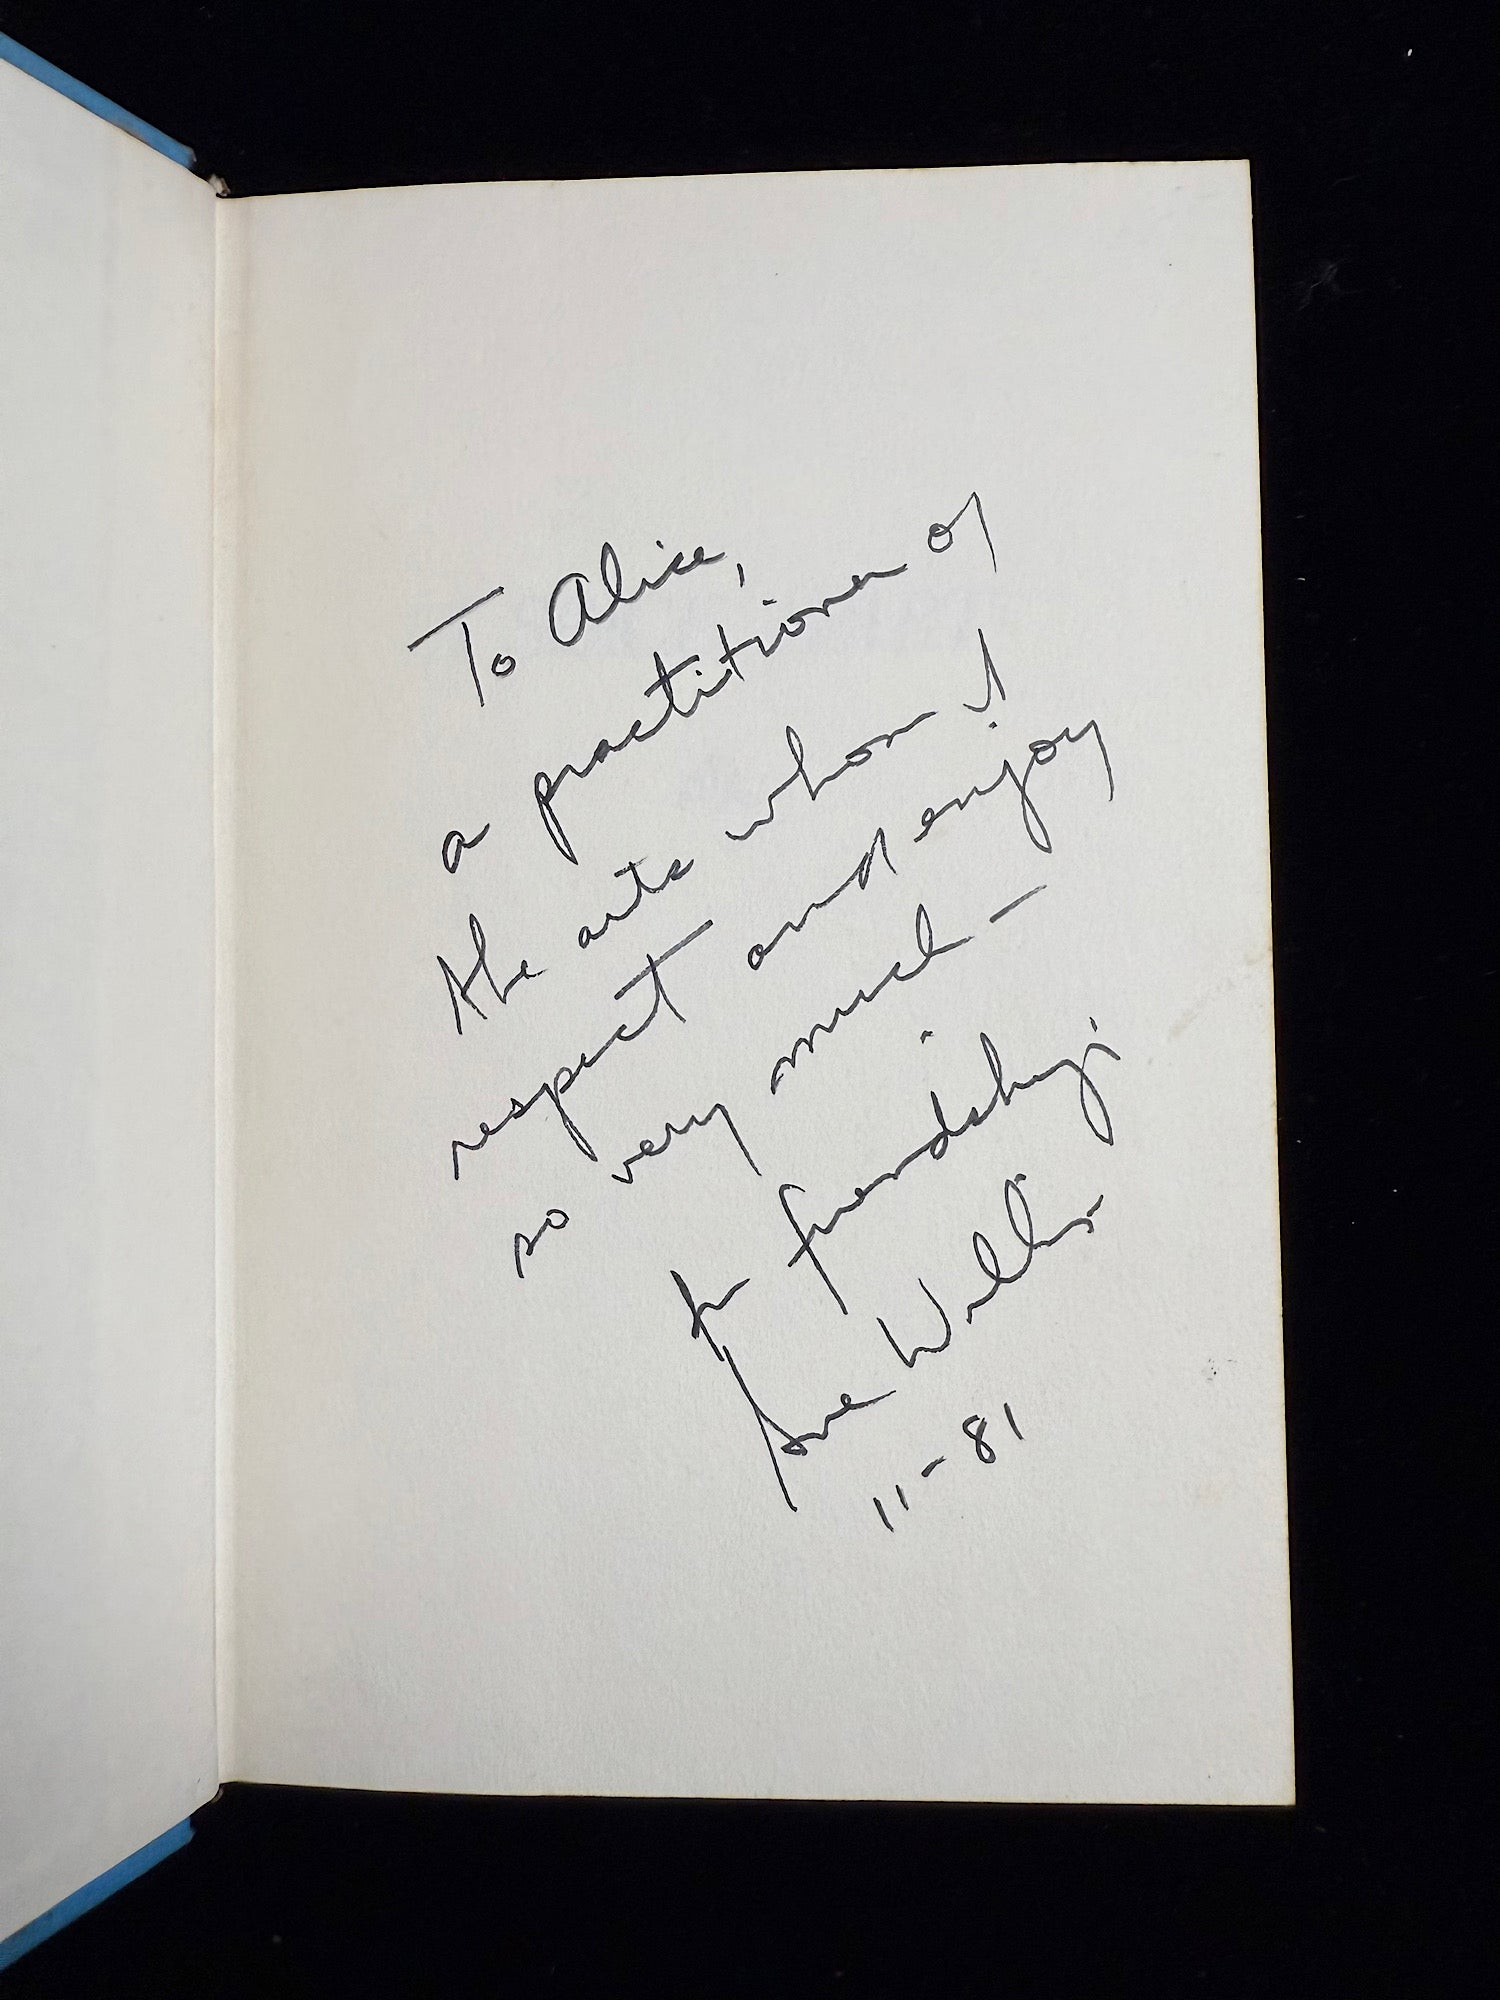 To Alice,
a practitioner of
the arts whom I
respect and enjoy
so very much —
In friendship,
Sue Willis
11-81